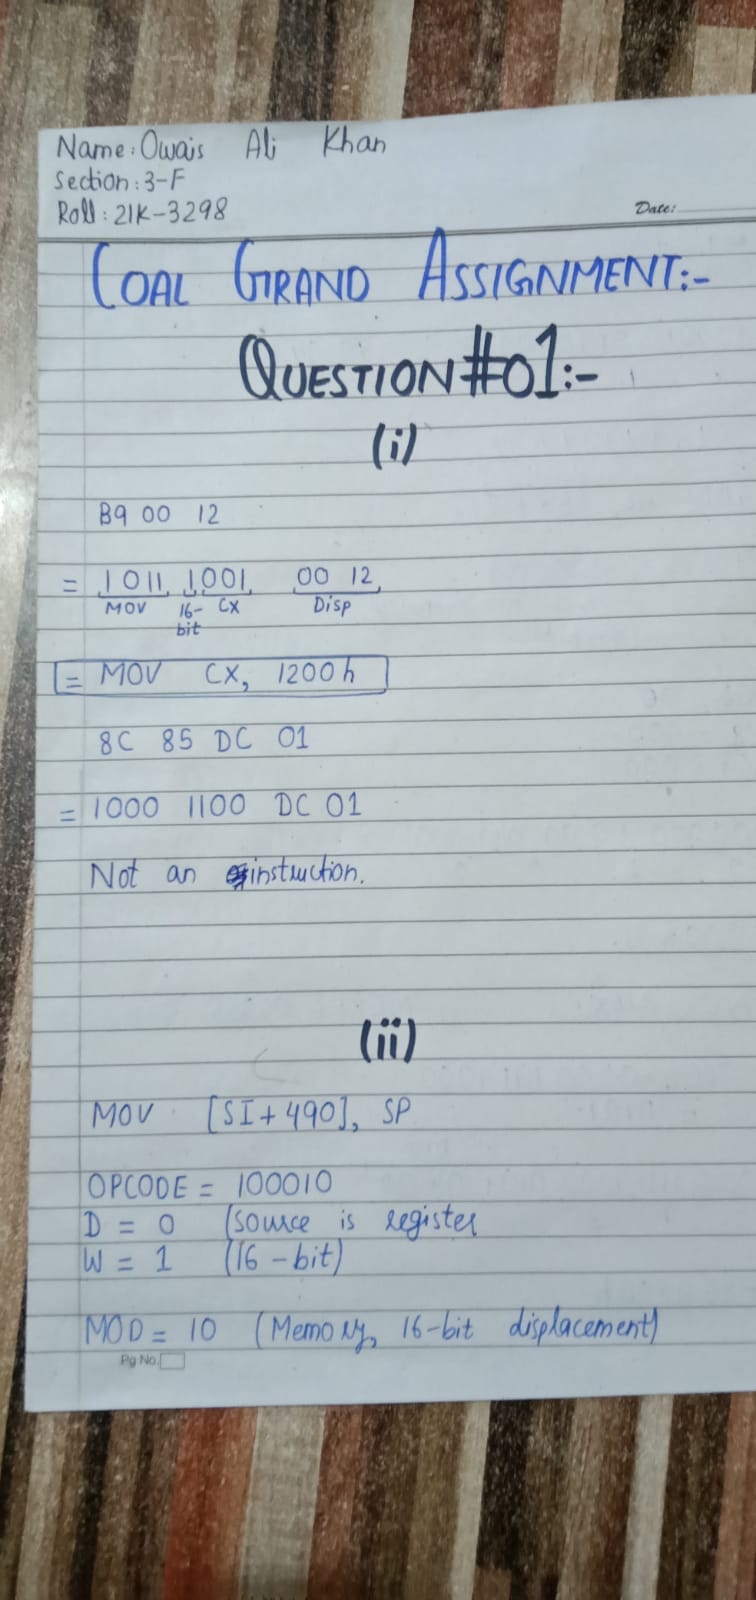 Name: Owais Ali Khan
Section: 3-F
Roll: 21K-3298
Date:
COAL GRAND ASSIGNMENT:-
QUESTION#01:-
(i)
B9 00 12
= 1011 1001 00 12
MOV 16-bit CX Disp
= MOV CX, 1200h
8C 85 DC 01
= 1000 1100 DC 01
Not an instruction.
(ii)
MOV [SI+490], SP
OPCODE = 100010
D = 0 (source is register
W = 1 (16-bit)
MOD = 10 (Memory, 16-bit displacement)
Pg No.